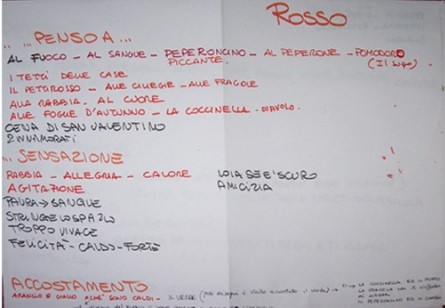 ROSSO
... PENSO A ...
AL FUOCO - AL SANGUE - PEPERONCINO - AL PEPERONE - POMODORO
PICCANTE. (IL SUGO)
I TETTI DELLE CASE
IL PETTIROSSO - ALLE CILIEGIE - ALLE FRAGOLE
ALLA RABBIA - AL CUORE
ALLE FOGLIE D'AUTUNNO - LA COCCINELLA - DIAVOLO.
CENA DI SAN VALENTINO
2 INNAMORATI
... SENSAZIONE
RABBIA - ALLEGRIA - CALORE
AGITAZIONE
PAURA → SANGUE
STRINGE LO SPAZIO
TROPPO VIVACE
FELICITÀ - CALDO - FORTE
NOIA SE E' SCURO
AMICIZIA
ACCOSTAMENTO
ARANCIO E GIALLO SONO CALDI - IL VERDE
LA COCCINELLA